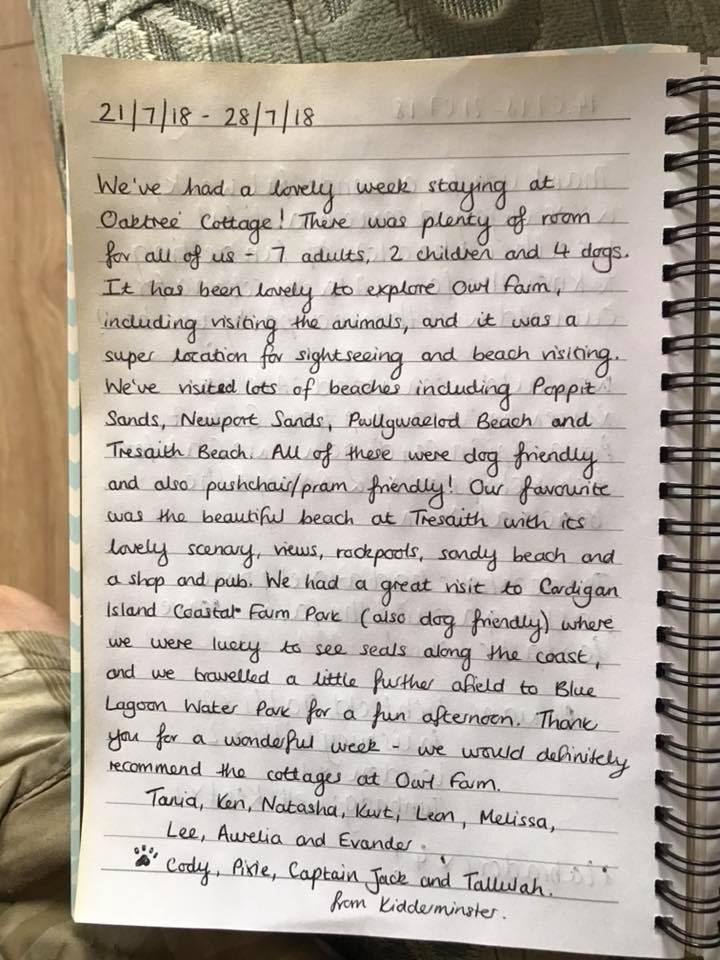 21/7/18 - 28/7/18
We've had a lovely week staying at
Oaktree Cottage! There was plenty of room
for all of us - 7 adults, 2 children and 4 dogs.
It has been lovely to explore Owl Farm,
including visiting the animals, and it was a
super location for sightseeing and beach visiting.
We've visited lots of beaches including Poppit
Sands, Newport Sands, Pwllgwaelod Beach and
Tresaith Beach. All of these were dog friendly
and also pushchair/pram friendly! Our favourite
was the beautiful beach at Tresaith with its
lovely scenary, views, rockpools, sandy beach and
a shop and pub. We had a great visit to Cardigan
Island Coastal Farm Park (also dog friendly) where
we were lucky to see seals along the coast,
and we travelled a little further afield to Blue
Lagoon Water Park for a fun afternoon. Thank
you for a wonderful week - we would definitely
recommend the cottages at Owl Farm.
Tania, Ken, Natasha, Kurt, Leon, Melissa,
Lee, Aurelia and Evander.
Cody, Pixie, Captain Jack and Tallulah.
from Kidderminster.